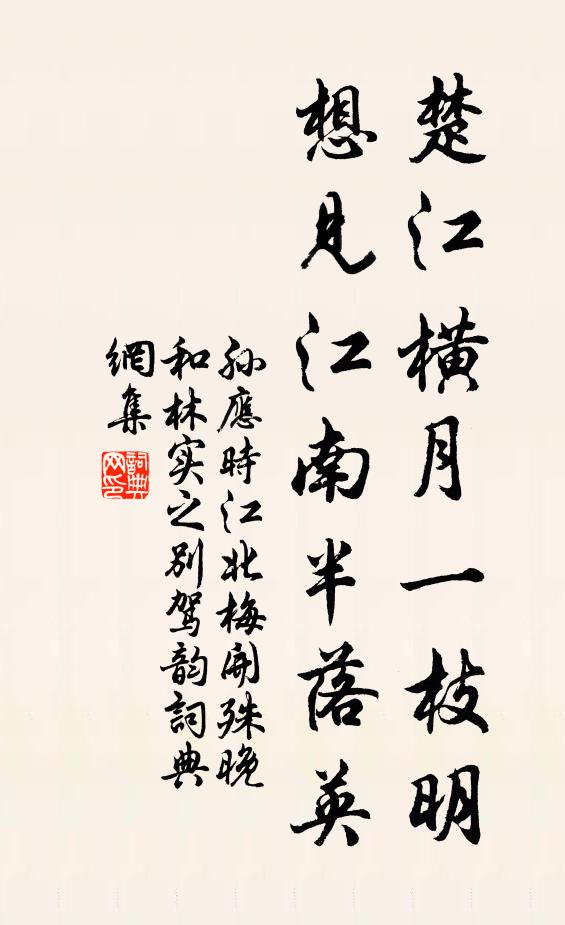 楚江横月一枝明
想见江南半落英
孙應時江北梅開殊晚
和林实之别驾韵詞典
網集
詞典
网印